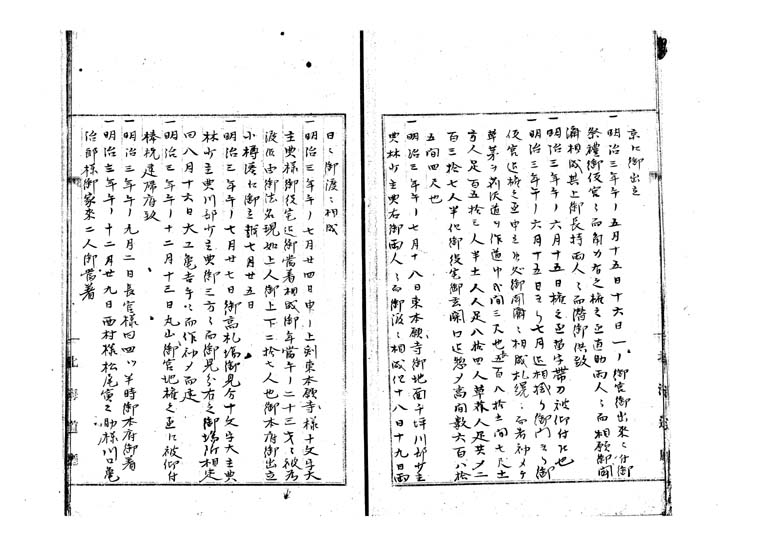 京江御出立
一明治三年午ノ五月十五日十六日一ノ御宮御出来ニ付御
祭禮御役宮ニ而角力有之検之丞直助両人ニ而相願御聞
済相成其上御長持両人ニ而滞御供致
一明治三年午ノ六月十五日検之丞苗字帯刀被仰付候也
一明治三年午ノ六月十五日ヨリ七月迄相掛り御門ヨリ御
役宮迄検之丞申立候処御聞済ニ相成札幌ニ而者初メテ
草茅ヲ刈渡道ヲ作道巾式間三尺也五百八拾壱間七尺土
方人足百五拾三人半土人人足八拾四人草苅人足共〆二
百三拾七人半他御役宅御玄関口迄惣〆高間数六百八拾
五間四尺也
一明治三年午ノ七月十八日東本願寺御地面ニ平坪川部少主
典林少主典右御両人ニ而御渡ニ相成候十八日十九日両
日ニ御渡ニ相成
一明治三年午ノ七月廿四日申ノ上刻東本願寺様十文字大
主典様御役宅迄御着相成御年當午ノ二十三才ニ被為
渡候由御法名現如上人御上下二拾七人也御本府御出立
小樽港江御立越七月廿五日
一明治三年午ノ七月廿七日御高札場御見分十文字大主典
林少主典川部少主典御三方ニ而御見分有之御場所相定
四八月十六日大工亀吉ニ而作初メ而建
一明治三年午ノ十二月十三日丸山御宮地検之丞江被仰付
棒杭建帰府致
一明治三年午ノ九月二日長官様日四ツ半時御本府御着
一明治三年午ノ十二月廿九日西村様松尾寅之助様川口亀
治郎様御家来二人御當着
北海道廳